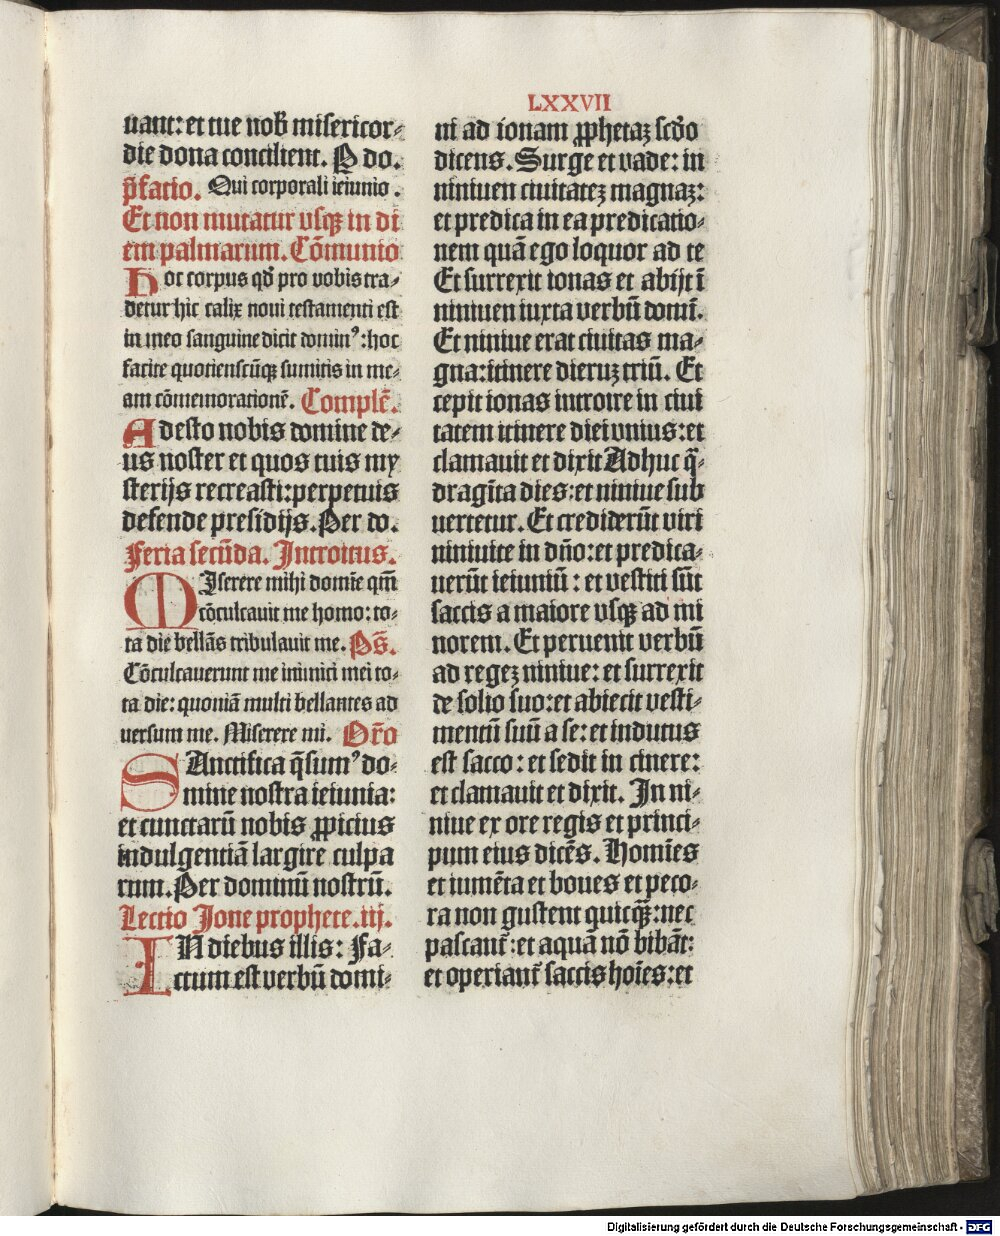 LXXVII
uant: et tue nob̄ misericor⸗
die dona concilient. P do.
p̄fatio. Qui corporali ieiunio.
Et non mutatur vsqꝫ in di
em palmarum. Cōmunio
Hoc corpus qḋ pro vobis tra⸗
detur hic calix noui testamenti est
in meo sanguine dicit domin⁹: hoc
facite quotienscūqꝫ sumitis in me⸗
am cōmemorationē. Complē.
Adesto nobis domine de⸗
us noster et quos tuis my
sterijs recreasti: perpetuis
defende presidijs. Per do.
Feria secūda. Introitus.
MIserere mihi domīe qm̄
cōculcauit me homo: to⸗
ta die bellās tribulauit me. Ps̄.
Cōculcauerunt me inimici mei to⸗
ta die: quoniā multi bellantes ad
uersum me. Miserere mi. Or̄o
SAnctifica q̄sum⁹ do⸗
mine nostra ieiunia:
et cunctarū nobis ꝓpicius
indulgentiā largire culpa
rum. Per dominū nostrū.
Lectio Ione prophete. iij.
IN diebus illis: Fa⸗
ctum est verbū domi⸗
ni ad ionam ꝓphetaꝫ scḋo
dicens. Surge et vade: in
niniuen ciuitateꝫ magnaꝫ:
et predica in ea predicatio⸗
nem quā ego loquor ad te
Et surrexit ionas et abijt ī
niniuen iuxta verbū domī.
Et niniue erat ciuitas ma⸗
gna: itinere dieruꝫ triū. Et
cepit ionas introire in ciui
tatem itinere diei vnius: et
clamauit et dixit Adhuc q̄⸗
dragīta dies: et niniue sub
uertetur. Et crediderūt viri
niniuite in dn̄o: et predica⸗
uerūt ieiuniū: et vestiti sūt
saccis a maiore vsqꝫ ad mi
norem. Et peruenit verbū
ad regeꝫ niniue: et surrexit
de solio suo: et abiecit vesti⸗
mentū suū a se: et indutus
est sacco: et sedit in cinere:
et clamauit et dixit. In ni⸗
niue ex ore regis et princi⸗
pum eius dicēs. Homīes
et iumēta et boues et peco⸗
ra non gustent quicq̄ꝫ: nec
pascant̄: et aquā nō bibāt:
et operiant̄ saccis hoīes: et
Digitalisierung gefördert durch die Deutsche Forschungsgemeinschaft - DFG